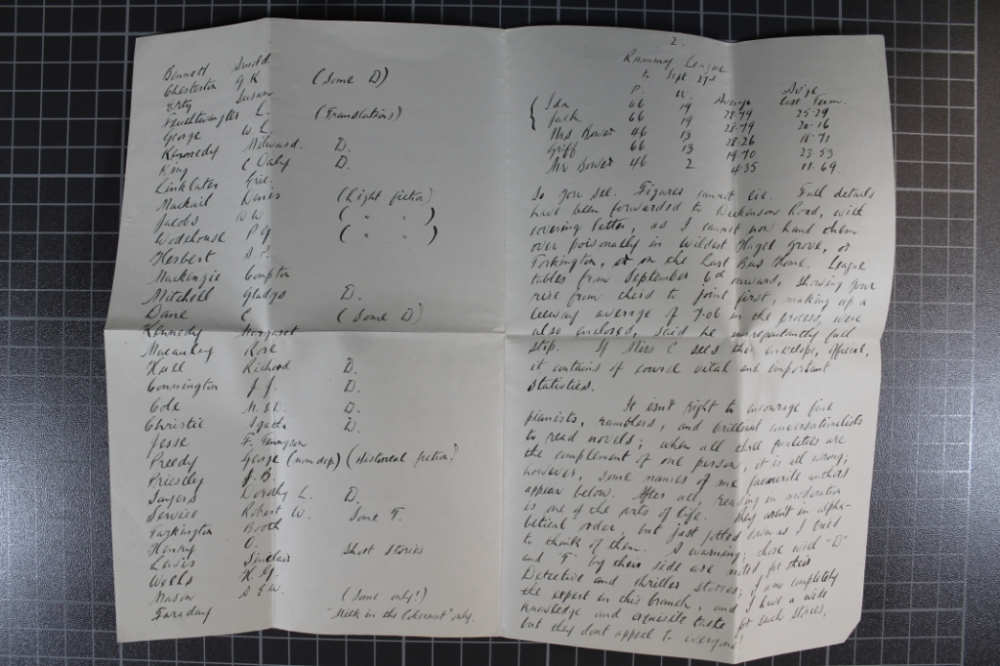 Bennett Arnold
Chesterton G K (Some D)
Ertz Susan
Feuchtwanger L. (Translations)
George W L.
Kennedy Milward. D.
King C Daly D.
Linklater Eric.
Mackail Denis (Light fiction)
Jacobs W W ( " " )
Wodehouse P G ( " " )
Herbert A. P.
Mackenzie Compton
Mitchell Gladys D.
Dane C (Some D)
Kennedy Margaret
Macaulay Rose
Hull Richard D.
Connington J. J. D.
Cole D.
Christie Agatha D.
Jesse F. Tennyson
Preedy George (nom dep) (Historical fiction?)
Priestley J. B.
Sayers Dorothy L. D.
Service Robert W. Some T.
Tarkington Booth
Henry O. Short stories
Lewis Sinclair
Wells H. G.
Mason A E W. (Some only!)
Faraday "Milk in the Coconut" only.
2.
Rummy League
to Sept 27d
P. W. Average Av'ge. Last Term.
Ida 66 19 28.79 25.29
Jack 66 19 28.79 20.16
Mrs Bower 46 13 28.26 18.71
Griff 66 13 19.70 23.53
Mr Bower 46 2 4.35 11.69.
So you see. Figures cannot lie. Full details
have been forwarded to Dickenson Road, with
covering letter, as I cannot now hand them
over personally in Wildest Hazel Grove, or
Torkington, or on the Last Bus Home. League
tables from September 6th onward, showing your
rise from third to joint first, making up a
leeway average of 7.06 in the process, were
also enclosed, said he unrepentantly full
stop. If Miss C sees this envelope, official,
it contains of course vital and important
statistics.
It isn't right to encourage fine
pianists, ramblers, and brilliant conversationalists
to read novels; when all three qualities are
the complement of one person, it is all wrong;
however, some names of me favourite authors
appear below. After all, reading in moderation
is one of the arts of life. They aren't in alpha-
betical order, but just jotted down as I tried
to think of them. A warning; those with "D"
and "T" by their side are noted for their
Detective and thriller stories; I am completely
the expert in this branch, and I have a wide
knowledge and exquisite taste for such stories,
but they dont appeal to everyone!